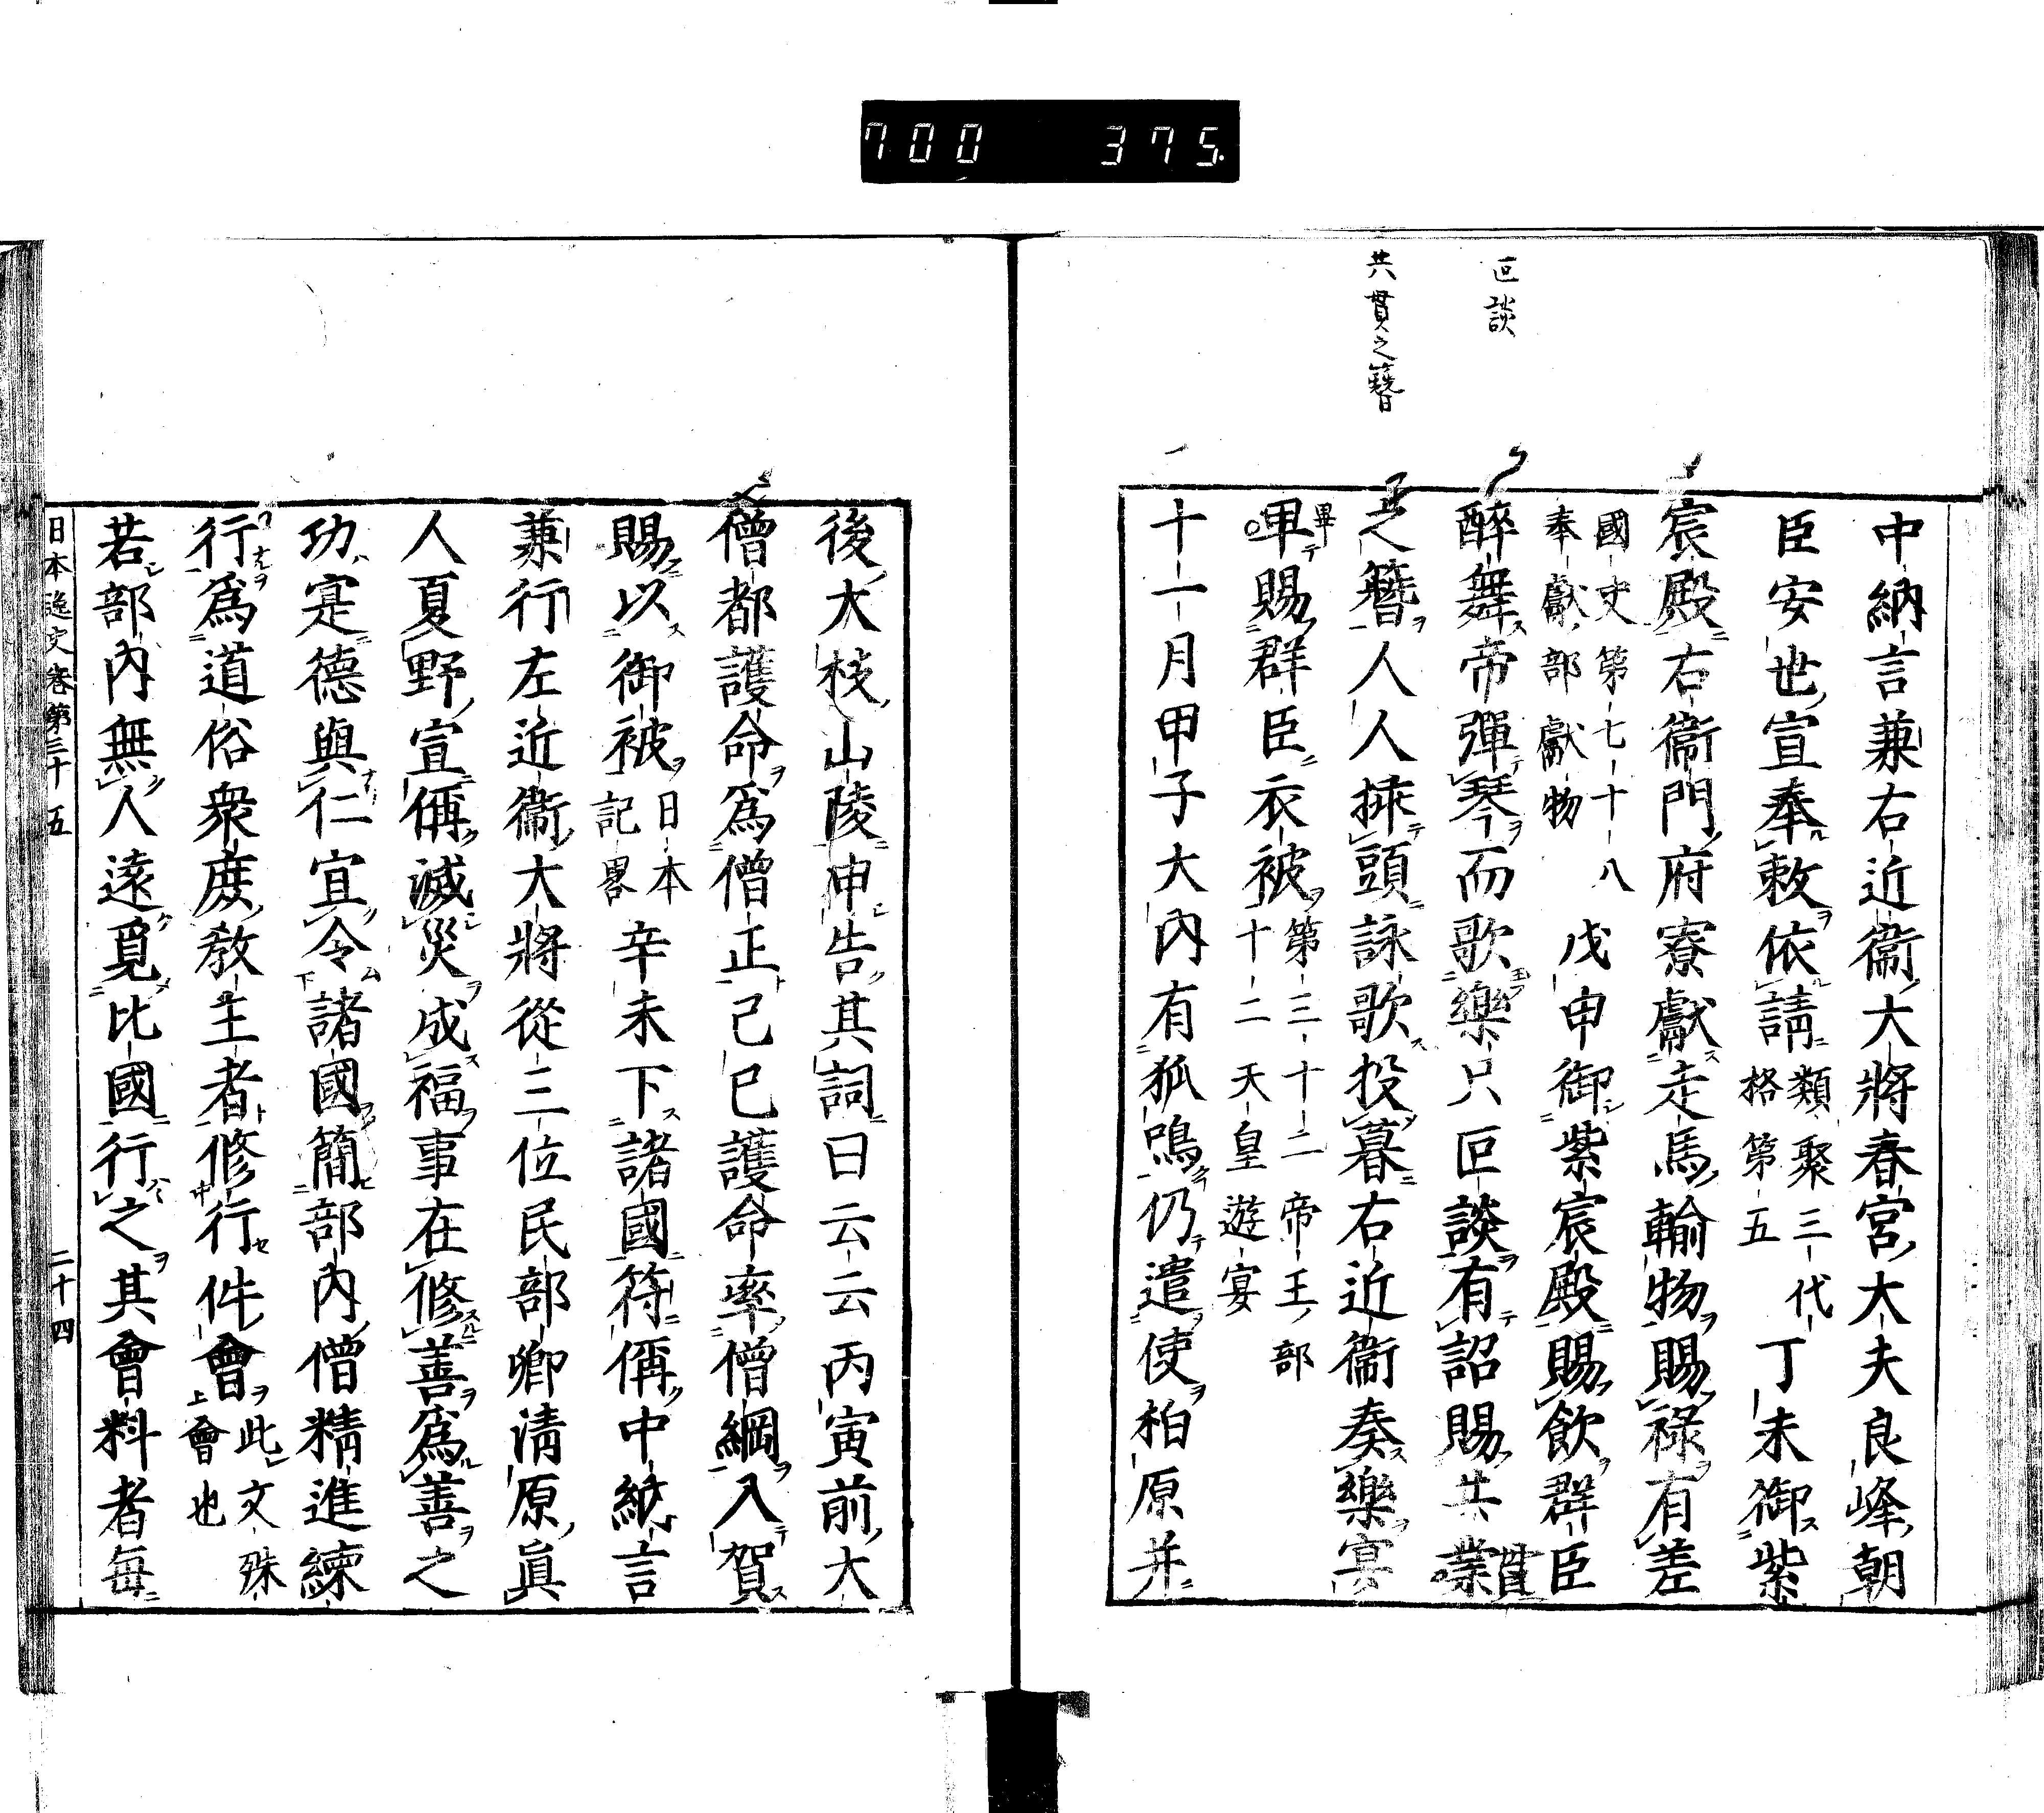 700 375.
叵談
共貫之簪
中納言兼右近衞大將春宮大夫良峰朝
臣安世宣奉敕依請類聚三代
格第五丁未御紫
宸殿右衞門府寮獻走馬輸物賜祿有差
國史第七十八
奉獻部獻物戊申御紫宸殿賜飲群臣
醉舞帝彈琴而歌樂只叵談有詔賜共業
貫
之簪人人揷頭詠歌投暮右近衞奏樂宴
畢
畢賜群臣衣被第三十二帝王部
十二天皇遊宴
十一月甲子大內有狐鳴仍遣使柏原并
後大枝山陵申告其詞曰云云丙寅前大
僧都護命爲僧正己巳護命率僧綱入賀
賜以御被日本
記畧辛未下諸國符偁中納言
兼行左近衞大將從三位民部卿淸原眞
人夏野宣偁滅災成福事在修善爲善之
功寔德與仁宜令諸國簡部內僧精進練
行爲道俗衆庶敎主者修行件會此文殊
會也
若部內無人遠覓比國行之其會料者每
日本逸史卷第三十五 二十四